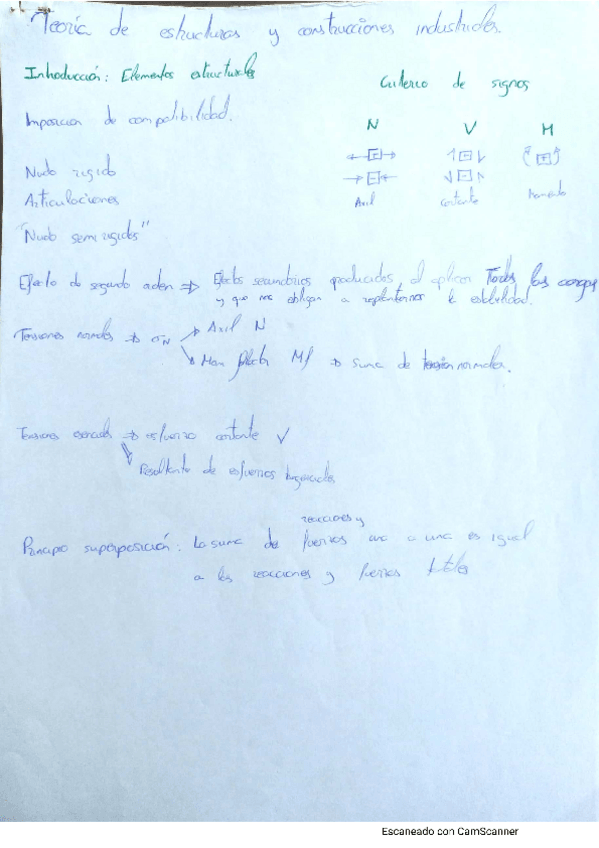 Teoría de estructuras y construcciones industriales
Introducción: Elementos estructurales
Criterio de signos
Imposición de compatibilidad.
N V M
Nudo rigido
Articulaciones
Axil Cortante Momento
"Nudo semirigidos"
Efecto de segundo orden ⇒ Efectos secundarios producidos al aplicar Todas las cargas
y que nos obligan a replantearnos la estabilidad.
Tensiones normales → σN Axil N
Mom flector Mf → Suma de tension normales.
Tensiones → esfuerzo cortante V
Resultante de esfuerzos tangenciales
reacciones y
Principio superposición: La suma de fuerzas una a una es igual
a las reacciones y fuerzas totales
Escaneado con CamScanner